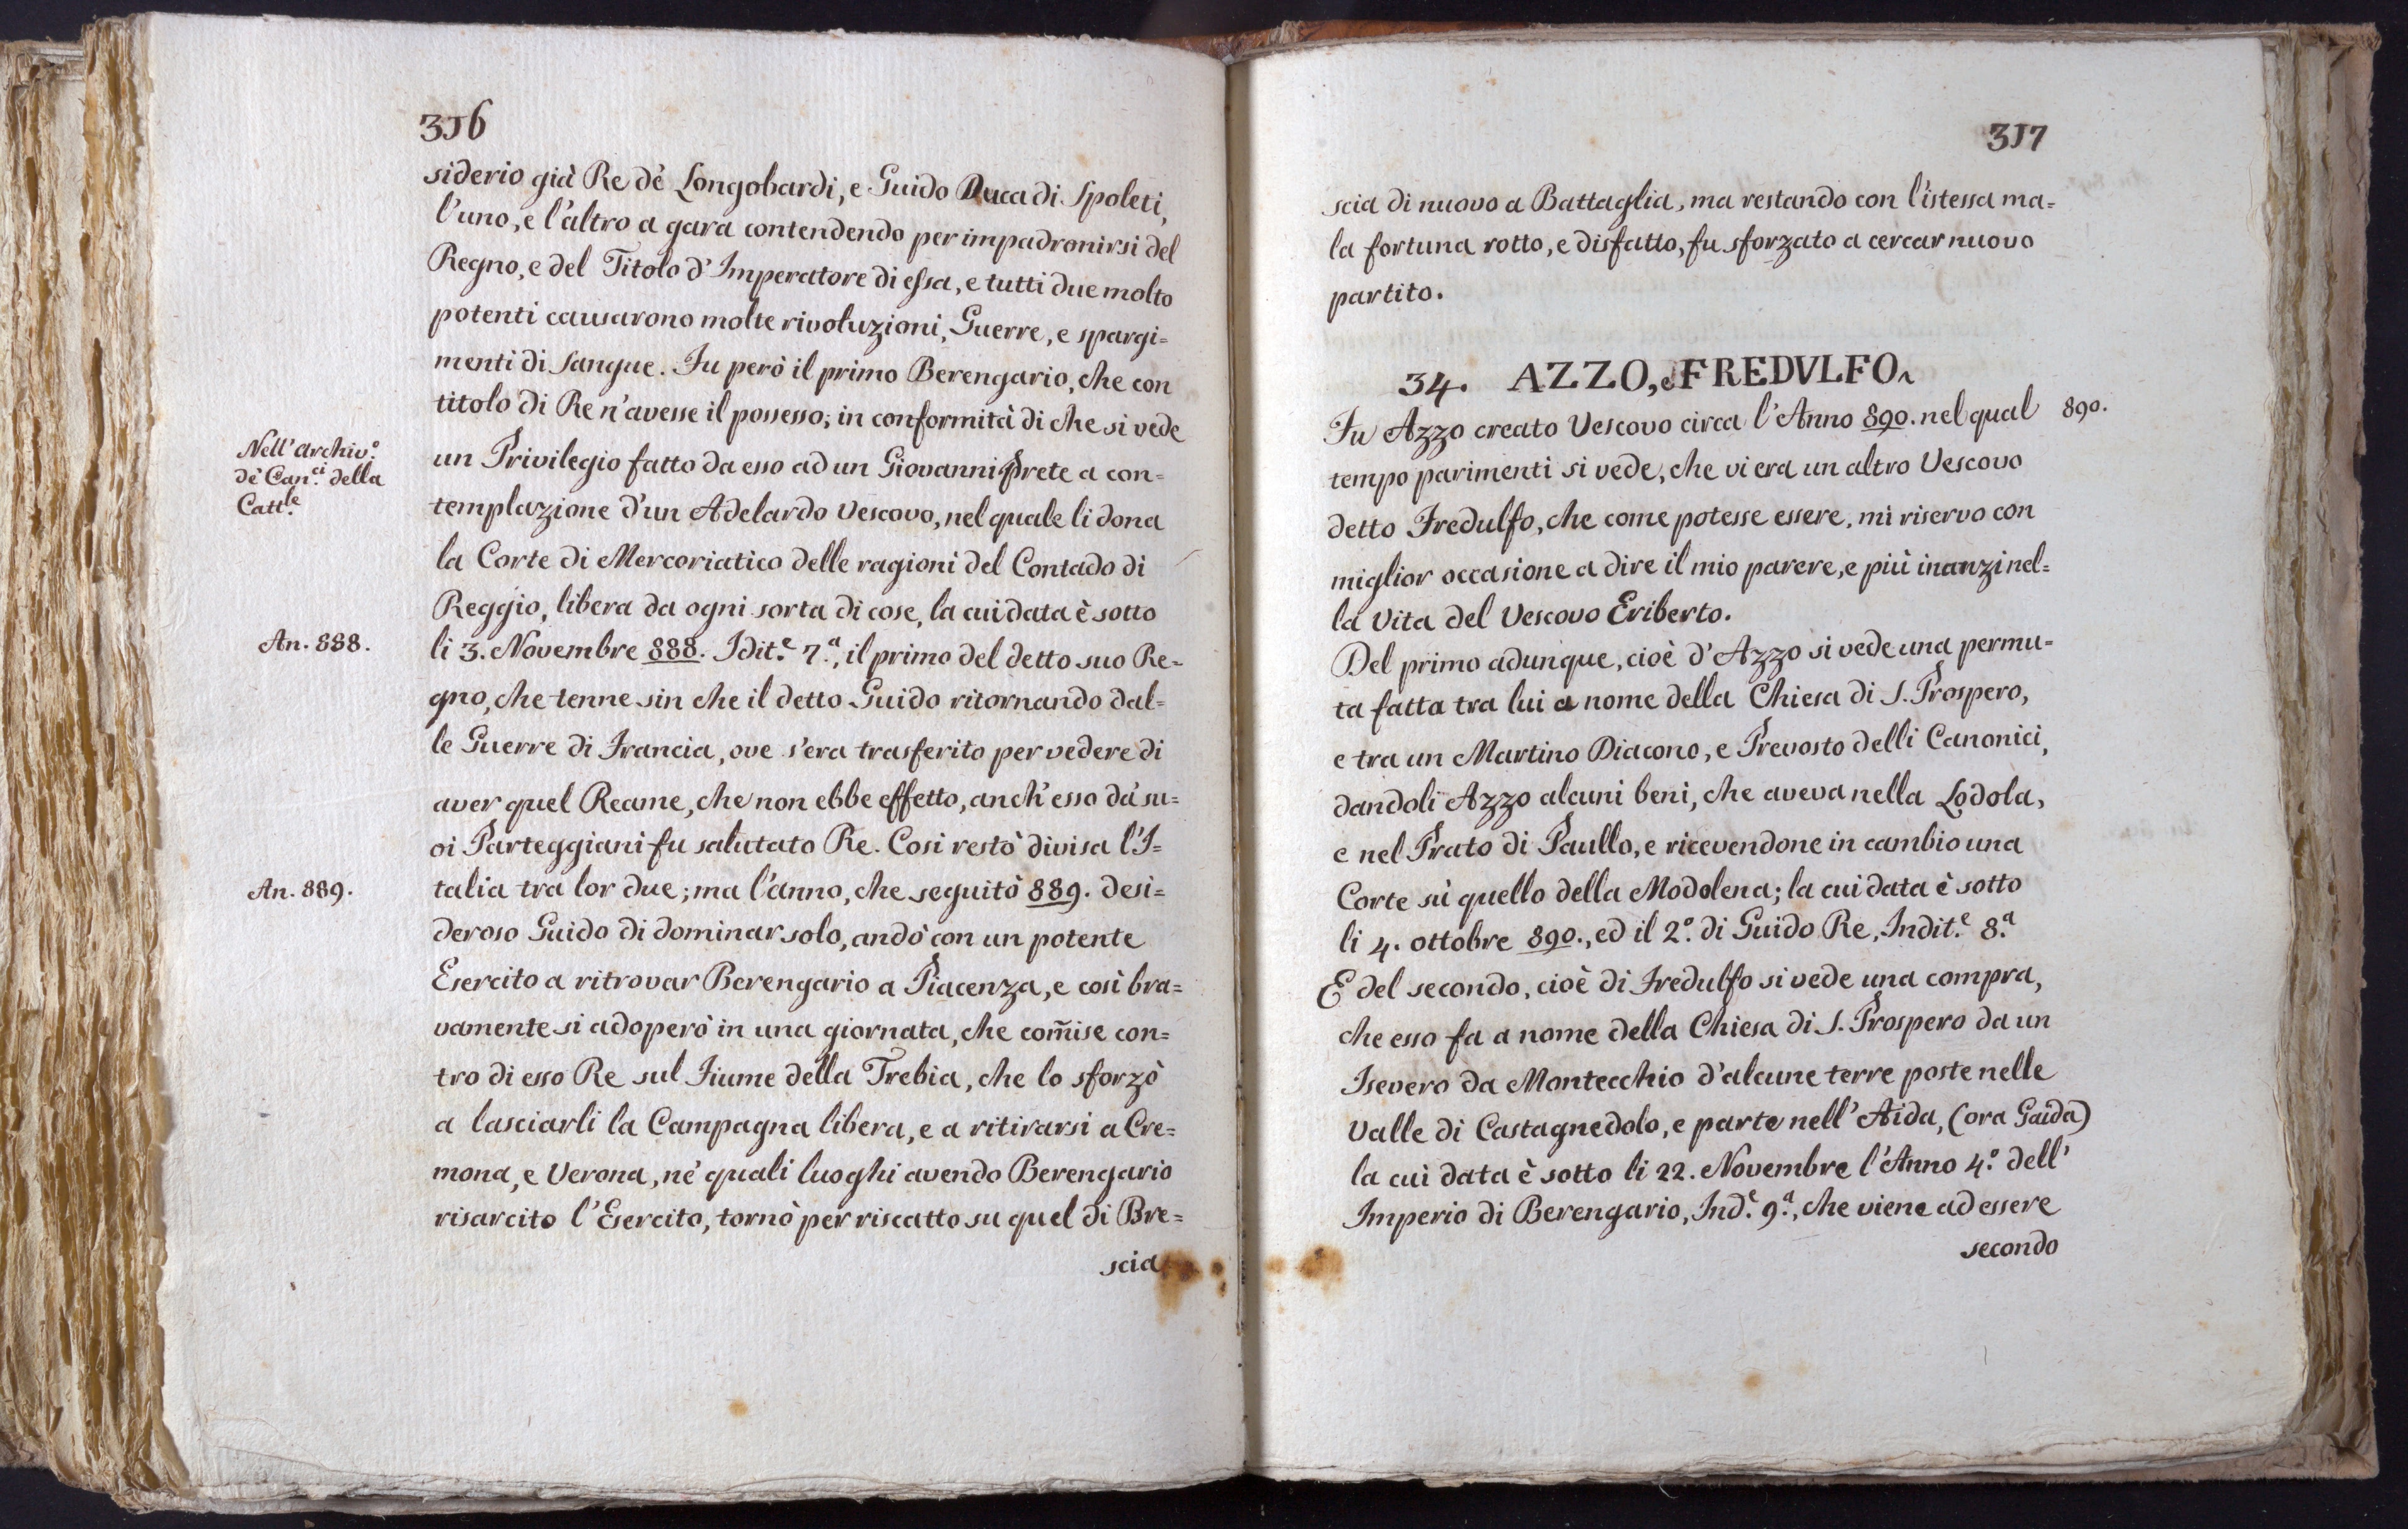 316
siderio già Re de' Longobardi, e Guido Duca di Spoleti,
l'uno, e l'altro a gara contendendo per impadronirsi del
Regno, e del Titolo d'Imperatore di essa, e tutti due molto
potenti causarono molte rivoluzioni, Guerre, e spargi=
menti di Sangue. Fu però il primo Berengario, che con
titolo di Re n'avesse il possesso; in conformità di che si vede
Nell'Archiv.º
de' Can.ci della
Catt.le
un Privilegio fatto da esso ad un Giovanni Prete a con=
templazione d'un Adelardo Vescovo, nel quale li dona
la Corte di Mercoriatico delle ragioni del Contado di
Reggio, libera da ogni sorta di cose, la cui data è sotto
An. 888.
li 3. Novembre 888. Idit.e 7.a, il primo del detto suo Re=
gno, che tenne sin che il detto Guido ritornando dal=
le Guerre di Francia, ove s'era trasferito per vedere di
aver quel Reame, che non ebbe effetto, anch'esso da' su=
oi Parteggiani fu salutato Re. Cosi restò divisa l'I=
An. 889.
talia tra lor due; ma l'anno, che seguitò 889. desi=
deroso Guido di dominar solo, andò con un potente
Esercito a ritrovar Berengario a Piacenza, e così bra=
vamente si adoperò in una giornata, che com̃ise con=
tro di esso Re sul Fiume della Trebia, che lo sforzò
a lasciarli la Campagna libera, e a ritirarsi a Cre=
mona, e Verona, ne' quali luoghi avendo Berengario
risarcito l'Esercito, tornò per riscatto su quel di Bre=
scia
317
scia di nuovo a Battaglia, ma restando con l'istessa ma=
la fortuna rotto, e disfatto, fu sforzato a cercar nuovo
partito.
34. AZZO, e FREDVLFO.
Fu Azzo creato Vescovo circa l'Anno 890. nel qual
890.
tempo parimenti si vede, che vi era un altro Vescovo
detto Fredulfo, che come potesse essere, mi riservo con
miglior occasione a dire il mio parere, e più inanzi nel=
la Vita del Vescovo Eriberto.
Del primo adunque, cioè d'Azzo si vede una permu=
ta fatta tra lui a nome della Chiesa di S. Prospero,
e tra un Martino Diacono, e Prevosto delli Canonici,
dandoli Azzo alcuni beni, che aveva nella Lodola,
e nel Prato di Paullo, e ricevendone in cambio una
Corte sù quello della Modolena; la cui data è sotto
li 4. ottobre 890., ed il 2.º di Guido Re, Indit.e 8.a
E del secondo, cioè di Fredulfo si vede una compra,
che esso fa a nome della Chiesa di S. Prospero da un
Isevero da Montecchio d'alcune terre poste nelle
Valle di Castagnedolo, e parte nell'Aida, (ora Gaida)
la cui data è sotto li 22. Novembre l'Anno 4.º dell'
Imperio di Berengario, Ind.e 9.a, che viene ad essere
secondo